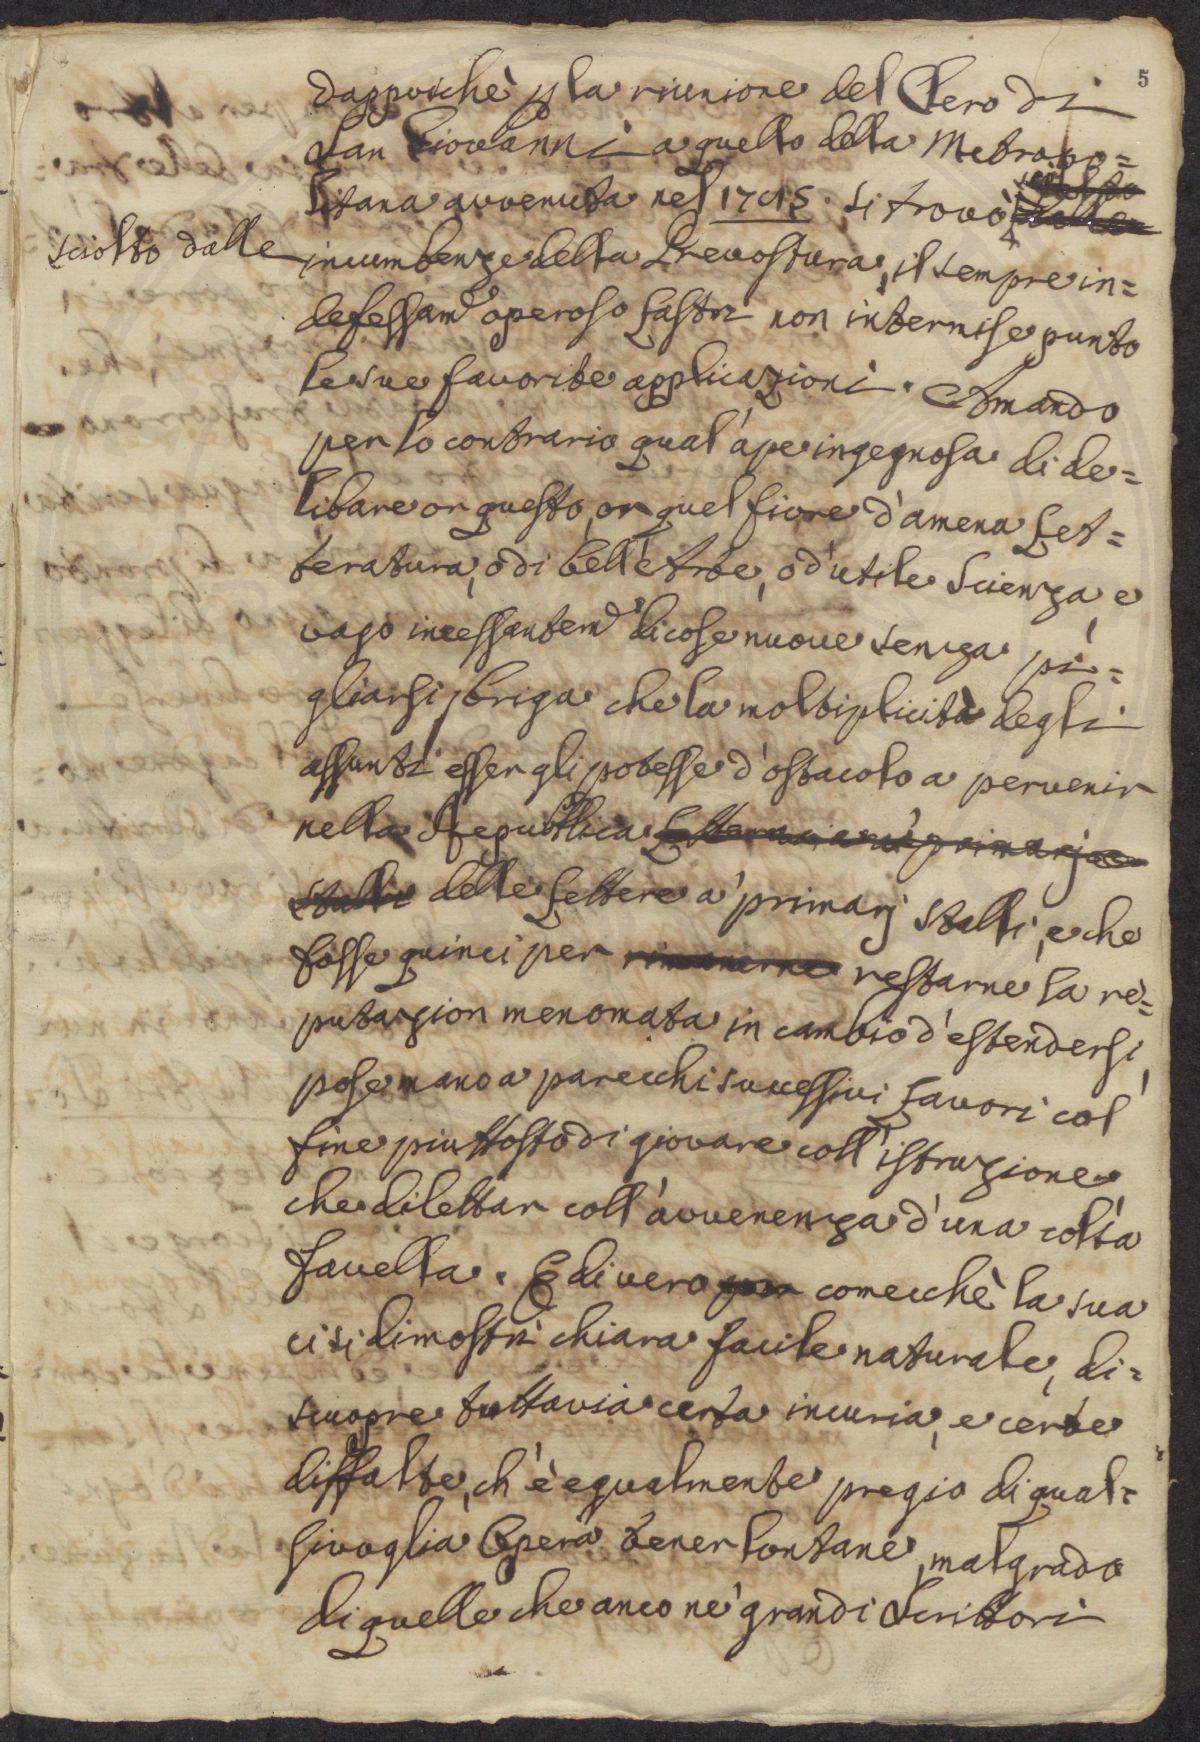 5
dappoichè p la riunione del Clero di
San Giovanni a quello della Metropo=
litana avvenuta nel 1705. si trovò
sciolto dalle
incumbenze della Prevostura, il sempre in=
defessam.e operoso Lastri non intermise punto
le sue favorite applicazioni. Amando
per lo contrario qual'ape ingegnosa di de=
libare or questo, or quel fiore d'amena Let=
teratura, o di bell'Arte, o d'utile Scienza, e
vago incessantem.e di cose nuove senza pi=
gliarsi briga che la moltiplicità degli
assunti esser gli potesse d'ostacolo a pervenir
nella Repubblica
delle Lettere a' primarj Stalli, e che
fosse quinci per restarne la re=
putazion menomata in cambio d'estendersi,
pose mano a parecchi successivi Lavori col
fine piuttosto di giovare coll'istruzione
che dilettar coll'avvenenza d'una colta
favella. E di vero comecchè la sua
ci si dimostri chiara facile naturale, di=
scuopre tuttavia certa incuria, e certe
diffalte, ch'è egualmente pregio di qual=
sivoglia Opera tener lontane, malgrado
di quelle che anco ne' grandi Scrittori